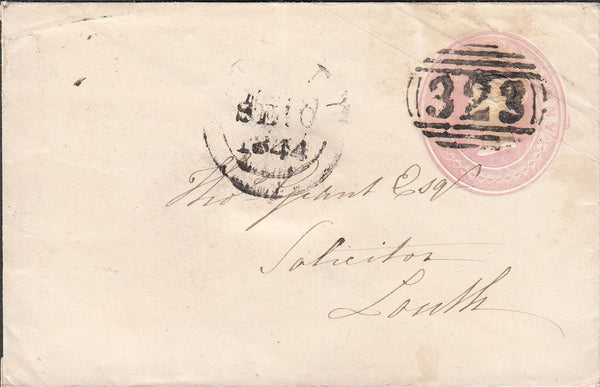 323
SE 10
1844
Tho Grant Esqr
Solicitor
Louth